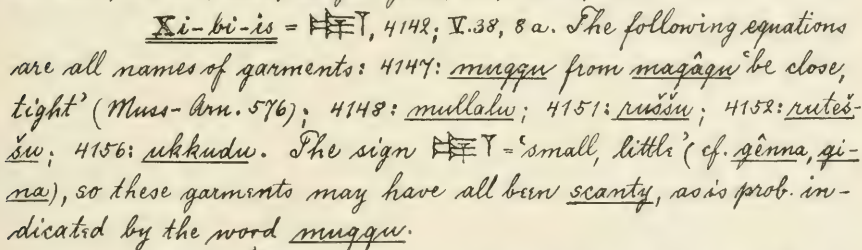 Xi-bi-is = 𒌉, 4142; V.38, 8 a. The following equations
are all names of garments: 4147: muqqu from maqâqu 'be close,
tight' (Muss-Arn. 576); 4148: mullalu; 4151: ruššu; 4152: ruteš-
šu; 4156: ukkudu. The sign = 'small, little' (cf. gênna, gi-
na), so these garments may have all been scanty, as is prob. in-
dicated by the word muqqu.